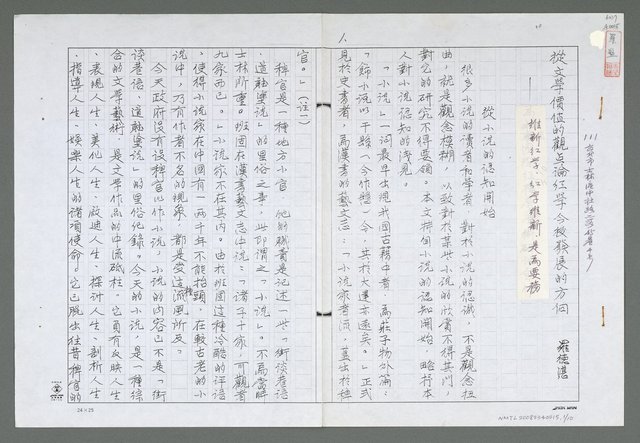 從文學價值的觀点論紅学今後發展的方向
維新紅学、紅学維新、是為要務
羅德湛
從小説的認知開始
很多小説的讀者和學者，對於小説的認識，不是觀念扭
曲，就是觀念模糊，以致對於某些小説的欣賞不得其門，
對它的研究不得要領。本文擬由小説的認知開始，略抒本
人對小説認知的淺見。
「小説」一詞最早出現我國古籍中者，為莊子物外篇：
「飾小説以干縣（今作懸）令，其於大達亦遠矣。」正式
見於史書者，為漢書藝文志：「小説家者流，蓋出於稗
1.
官。」（注一）
稗官是一種地方小官，他的職責是記述一些「街談巷語
、道聽塗説」的里俗之事，此即謂之「小説」。不為當時
士林所重。班固在漢書藝文志中説：「諸子十家，可觀者
九家而已。」小説家不在其內。由於班固這種冷酷的評語
，使得小説家在中國有一兩千年不能抬頭，在較古老的小
説中，乃有作者不名的現象，都是受這種流風所及。
今天政府沒有設稗官以作小説，小説的內容已不是「街
談巷語、道聽塗説」的里俗紀錄。今天的小説，是一種綜
合的文學藝術，是文學作品的中流砥柱。它負有反映人生
、表現人生、美化人生、啟迪人生、探討人生、剖析人生
、指導人生、娛樂人生的諸項使命。它已脫出往昔稗官的
24×25
NMTL20080340015, 1/10